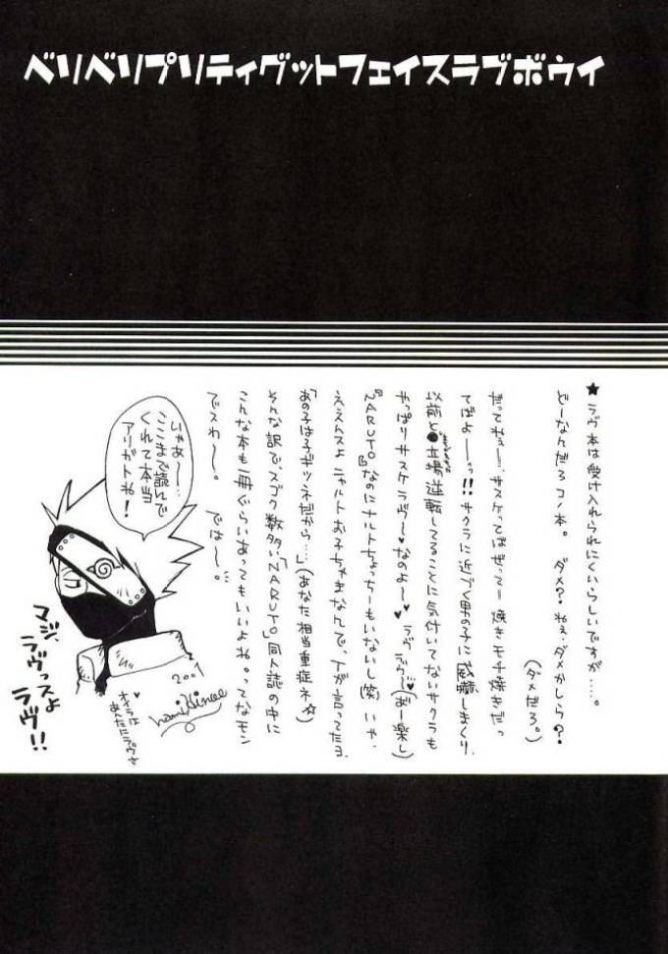 ベリベリプリティグットフェイスラブボウイ
★ラヴ本は受け入れられにくいらしいですが……。
どーなんだろコノ本。 ダメ?ねぇ、ダメかしら?
(ダメだろ。)
だってねぇー…サスケってばぜってー焼きモチ焼きだっ
てばよー…っ!!サクラに近づく男の子に威嚇しまくり、
以前と立場逆転してることに気付いてないサクラも
やっぱりサスケラヴ〜♥なのよ〜♥ラヴ ラヴ〜♥(あー楽し)
『NARUTO』なのにナルトちょっちーもいないし(笑)いゃ、
ええんスよニャルトお子ちゃまなんで、Tが言ってたヨ、
「あの子は子ギツネだから…」(あなた相当重症ネ☆)
そんな訳で、スゴク数多い「NARUTO」同人誌の中に
こんな本も一冊ぐらいあってもいいよね。ってなモン
でスわ〜。 では〜。
いゃあ〜…
ここまで読んで
くれて本当
アリガトね!
マジ、
ラヴっスよ
ラヴ!!
オイラは
あんたにラヴさ♥